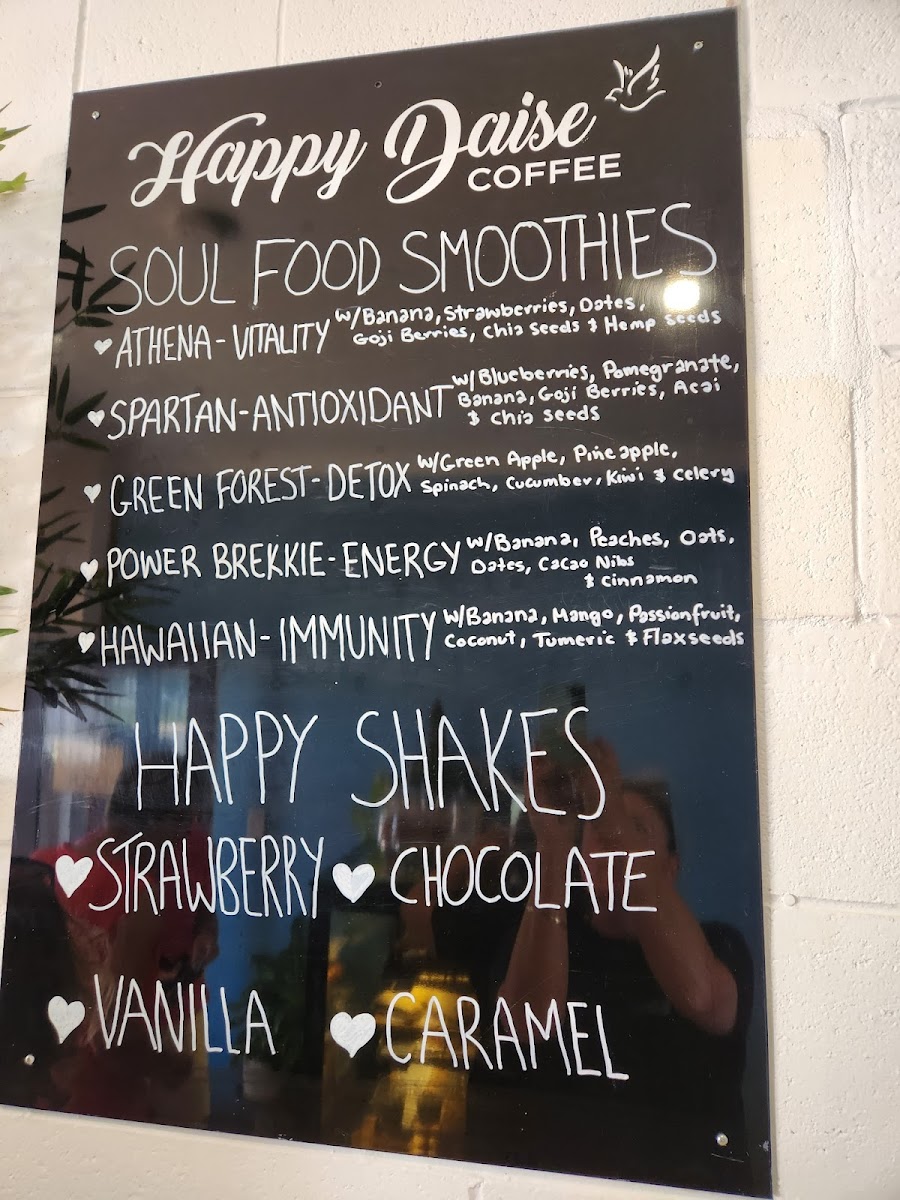 Happy Daise
COFFEE
SOUL FOOD SMOOTHIES
ATHENA-VITALITY w/Banana, Strawberries, Dates,
Goji Berries, Chia Seeds & Hemp Seeds
SPARTAN-ANTIOXIDANT w/Blueberries, Pomegranate,
Banana, Goji Berries, Acai
& Chia Seeds
GREEN FOREST-DETOX w/Green Apple, Pineapple,
Spinach, Cucumber, Kiwi & Celery
POWER BREKKIE-ENERGY w/Banana, Peaches, Oats,
Dates, Cacao Nibs
& Cinnamon
HAWAIIAN-IMMUNITY w/Banana, Mango, Passionfruit,
Coconut, Tumeric & Flaxseeds
HAPPY SHAKES
STRAWBERRY CHOCOLATE
VANILLA CARAMEL